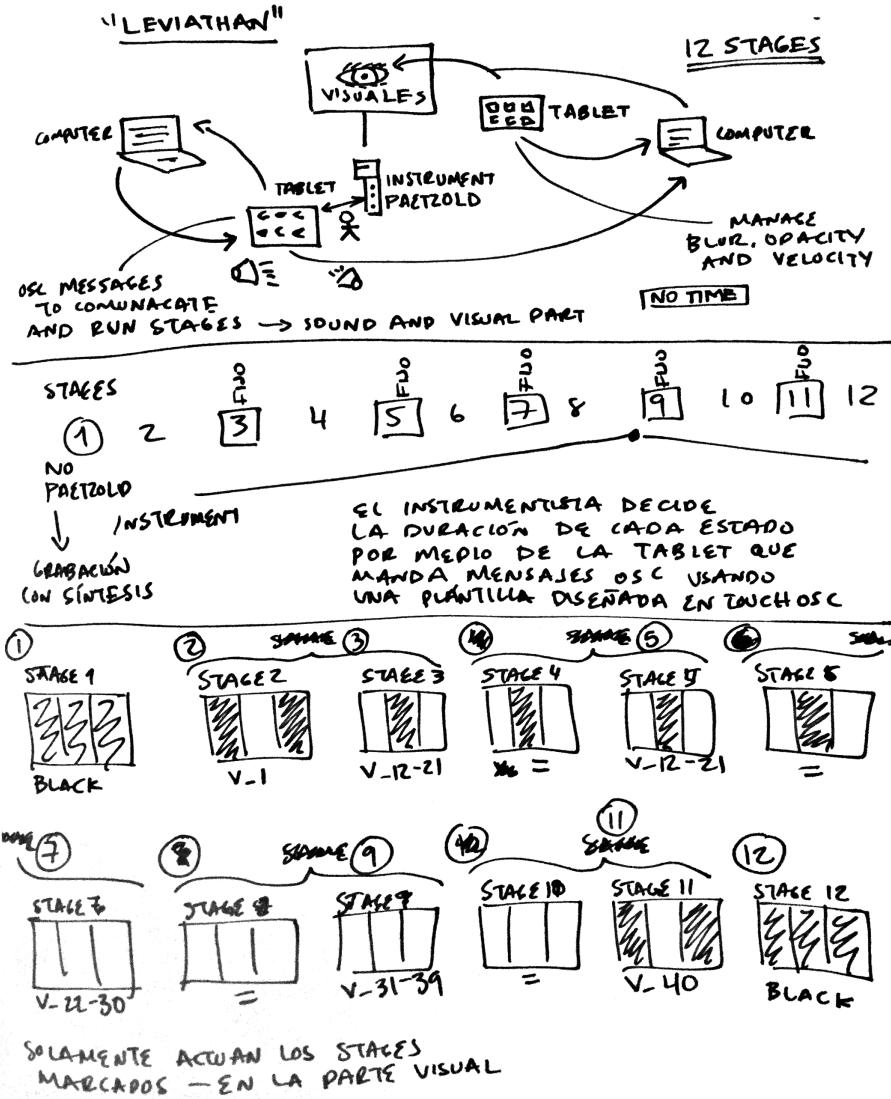 "LEVIATHAN"
12 STAGES
VISUALES
TABLET
COMPUTER
COMPUTER
TABLET
INSTRUMENT
PAETZOLD
MANAGE
BLUR, OPACITY
AND VELOCITY
OSC MESSAGES
TO COMUNACATE
AND RUN STAGES → SOUND AND VISUAL PART
NO TIME
STAGES
FIJO FIJO FIJO FIJO FIJO
1 2 3 4 5 6 7 8 9 10 11 12
NO
PAETZOLD
INSTRUMENT
GRABACIÓN
CON SÍNTESIS
EL INSTRUMENTISTA DECIDE
LA DURACIÓN DE CADA ESTADO
POR MEDIO DE LA TABLET QUE
MANDA MENSAJES OSC USANDO
UNA PLANTILLA DISEÑADA EN TOUCHOSC
1 2 3 5
STAGE 1 STAGE 2 STAGE 3 STAGE 4 STAGE 5 STAGE 6
BLACK V_1 V_12-21 = V_12-21 =
7 9 11 12
STAGE 7 STAGE 8 STAGE 9 STAGE 10 STAGE 11 STAGE 12
V_22-30 = V_31-39 = V_40 BLACK
SOLAMENTE ACTUAN LOS STAGES
MARCADOS — EN LA PARTE VISUAL